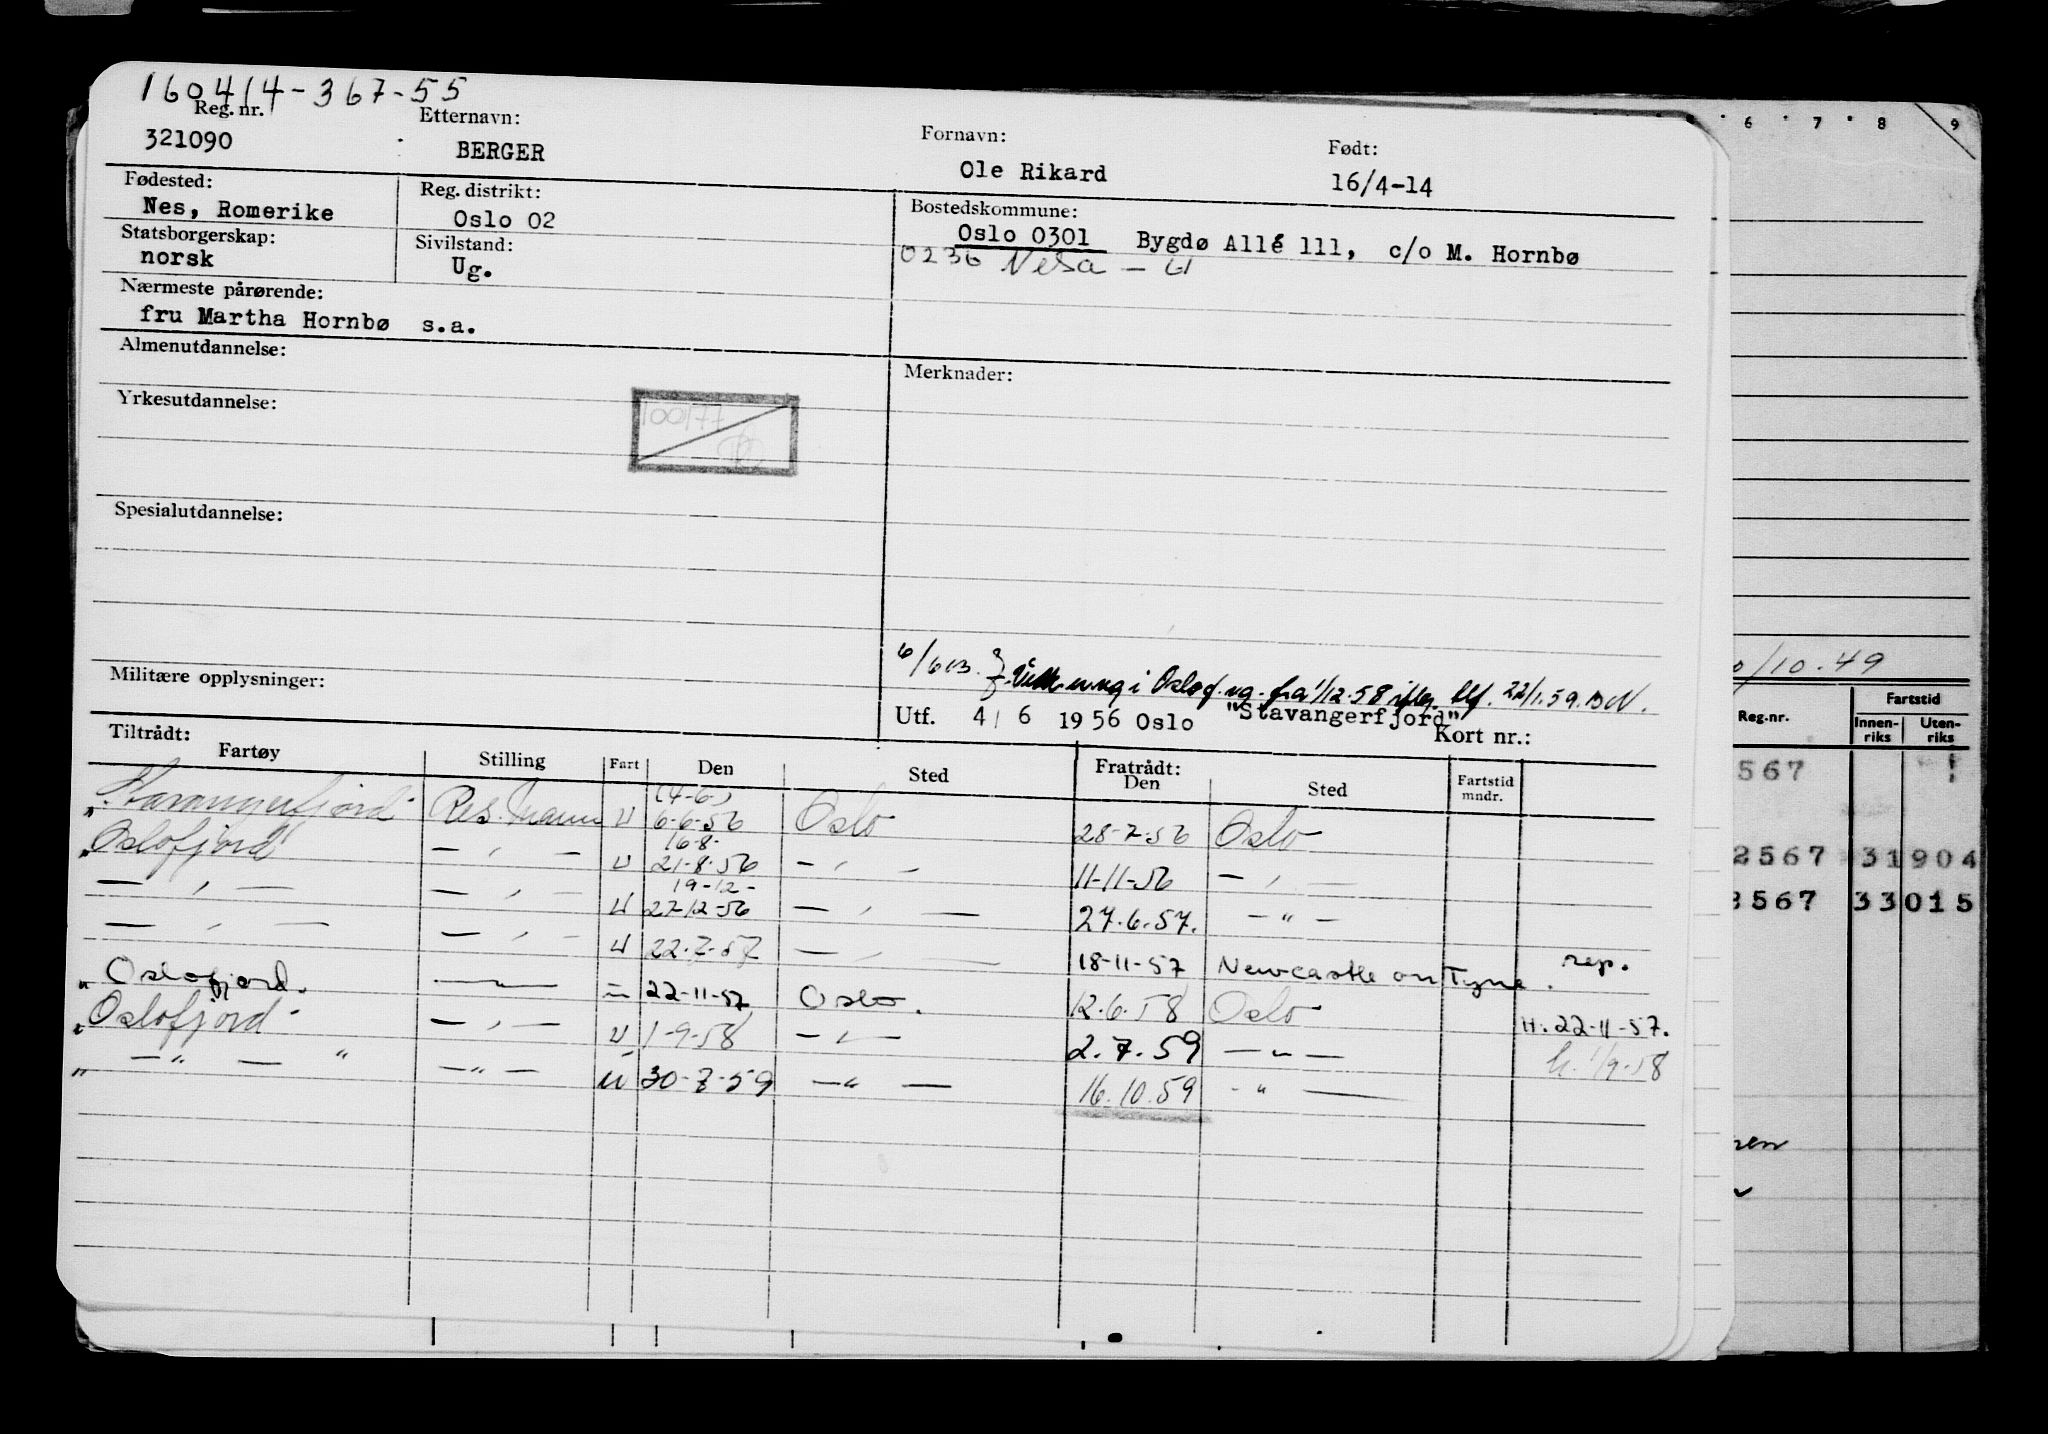 160414-367-55
Reg. nr. Etternavn: Fornavn: Født:
321090 BERGER Ole Rikard 16/4-14
Fødested: Reg. distrikt: Bostedskommune:
Nes, Romerike Oslo 02 Oslo 0301 Bygdø Allé 111, c/o M. Hornbø
Statsborgerskap: Sivilstand: 0236 Nesa - U
norsk Ug.
Nærmeste pårørende:
fru Martha Hornbø s.a.
Almenutdannelse: Merknader:
Yrkesutdannelse:
100/77
Spesialutdannelse:
i Oslof. fra 1/12-58 22/1.59.
Militære opplysninger: Utf. 4/6 1956 Oslo "Stavangerfjord"
Kort nr.:
Tiltrådt: Fratrådt:
Fartøy Stilling Fart Den Sted Den Sted Fartstid mndr.
(4-6)
"Stavangerfjord" Res. mann U 6-6-56 Oslo 28-7-56 Oslo
16-8-
"Oslofjord" — " — U 21-8-56 — " — 11-11-56 — " —
19-12-
— " — — " — U 27-12-56 — " — 27.6.57. — " —
— " — — " — U 22-7-57 — " — 18-11-57 Newcastle on Tyne. rep.
" Oslofjord. — " — — " — 22-11-57 Oslo. 12.6.58 Oslo H. 22-11-57.
"Oslofjord" — " — U 1-9-58 — " — 2.7.59 — " — h. 1/9-58
" — " — " — " — U 30-7-59 — " — 16.10.59 — " —
6 7 8 9
/10.49
Reg.nr. Fartstid
Innen-riks Uten-riks
567
2567 31 904
3567 33 015